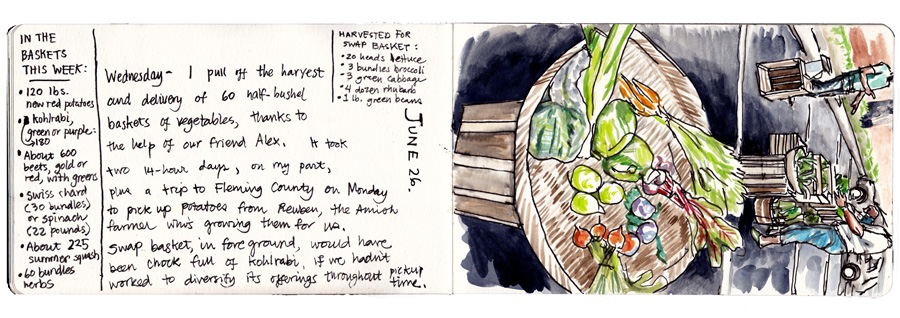 IN THE
BASKETS
THIS WEEK:
• 120 lbs.
new red potatoes
• kohlrabi,
green or purple:
180
• About 600
beets, gold or
red, with greens
• Swiss chard
(30 bundles)
or spinach
(22 pounds)
• About 225
summer squash
• 60 bundles
herbs
Wednesday - I pull off the harvest
and delivery of 60 half-bushel
baskets of vegetables, thanks to
the help of our friend Alex. It took
two 14-hour days, on my part,
plus a trip to Fleming County on Monday
to pick up potatoes from Reuben, the Amish
farmer who's growing them for us.
Swap basket, in foreground, would have
been chock full of kohlrabi, if we hadn't
worked to diversify its offerings throughout pickup
time.
HARVESTED FOR
SWAP BASKET:
• 20 heads lettuce
• 3 bundles broccoli
• 3 green cabbage
• 4 dozen rhubarb
• 1 lb. green beans
JUNE 26.